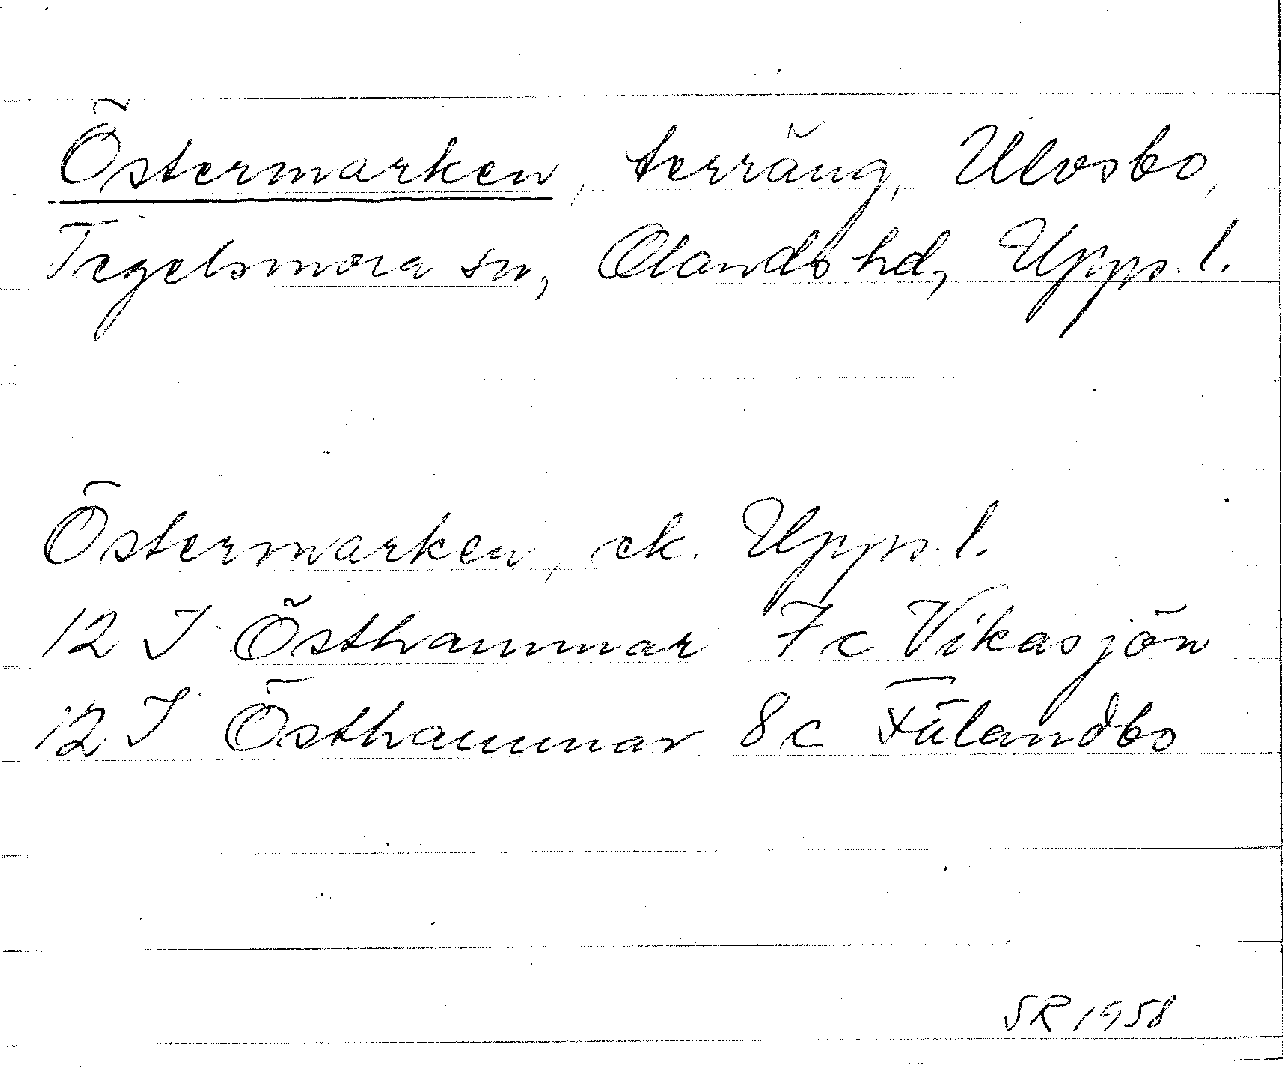 Östermarken, terräng, Ulvsbo,
Tegelsmora sn, Olands hd, Uppl.
Östermarken, ek. Uppl.
12 I Östhammar 7c Vikasjön
12 I Östhammar 8c Fälandbo
SR 1958